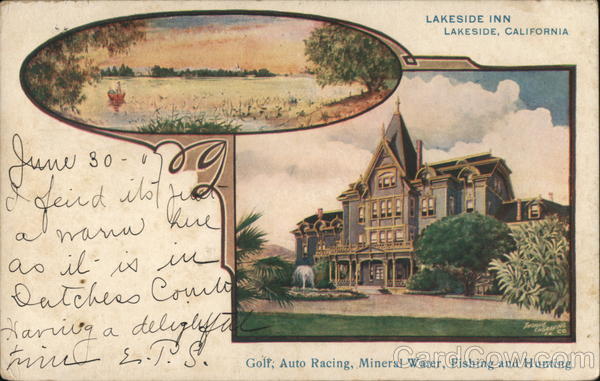 LAKESIDE INN
LAKESIDE, CALIFORNIA
June 30 -
I feind its just
a warm here
as it is in
Dutchess Count
Having a delightful
time E.P.S.
Golf, Auto Racing, Mineral Water, Fishing and Hunting
CardCow.com